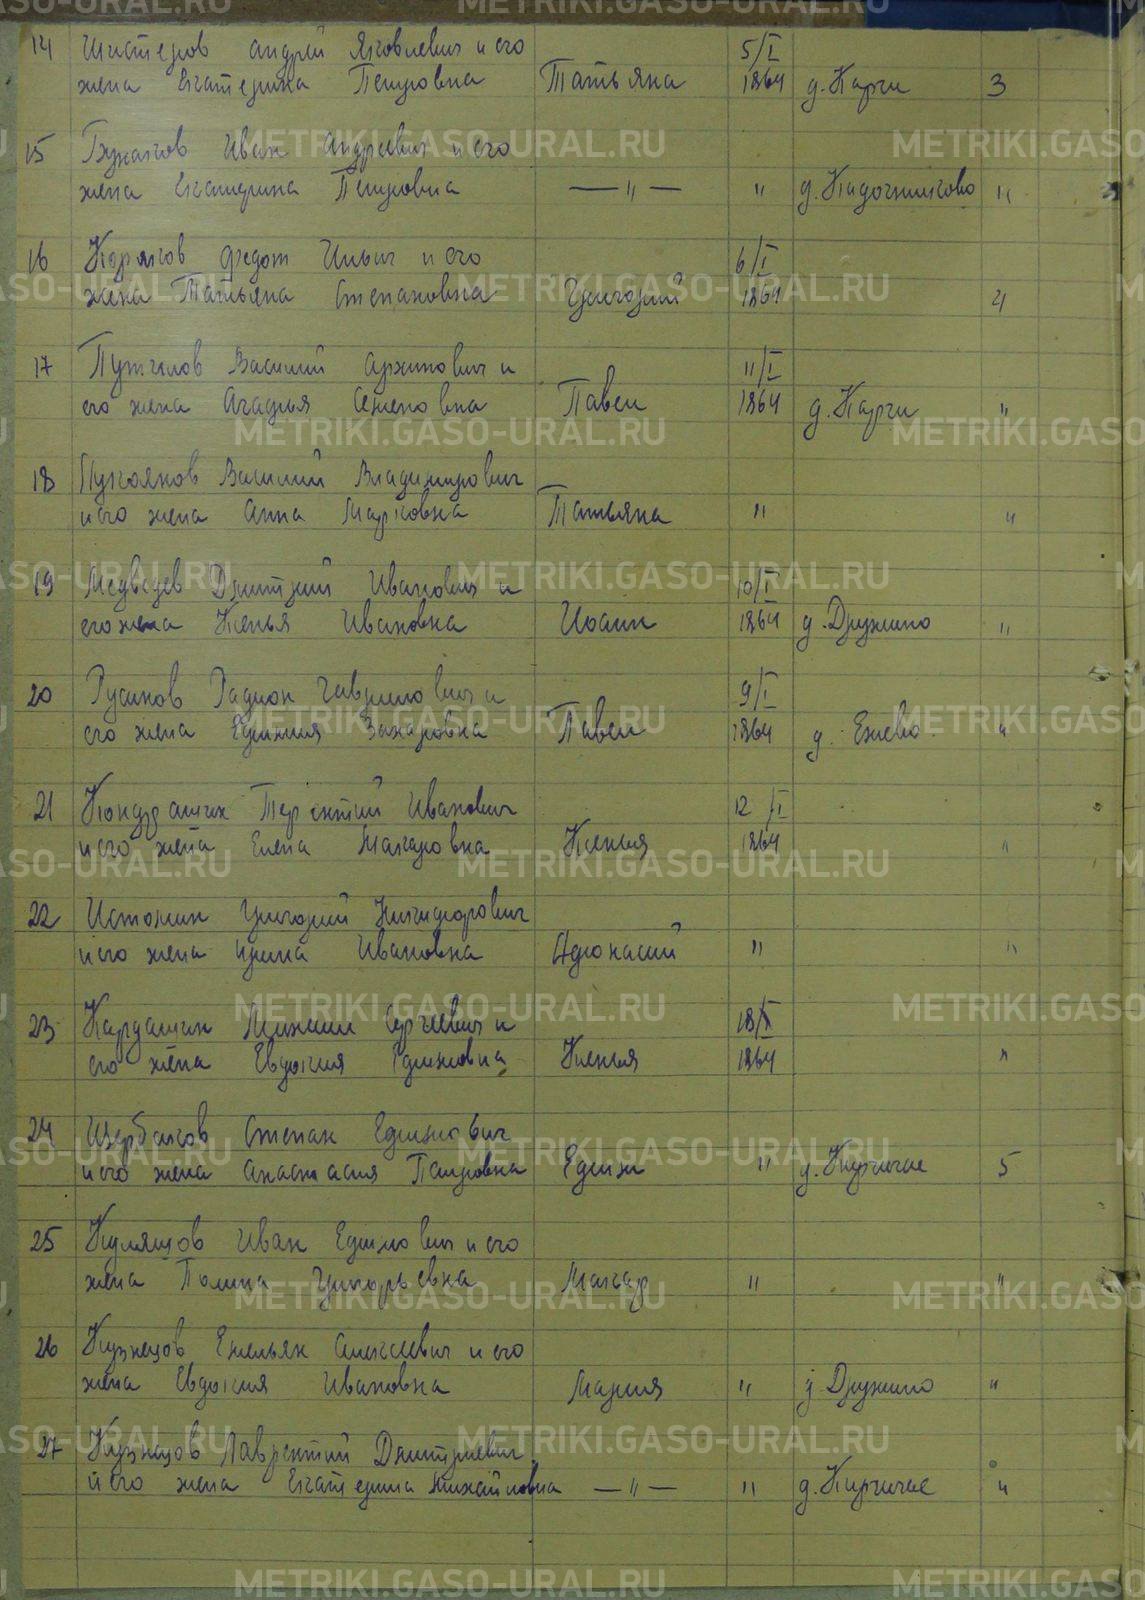 14 Шистеров Андрей Яковлевич и его
жена Екатерина Петровна Татьяна 5/I 1864 д. Карги 3
15 Иван Андреевич и его
жена Екатерина Петровна —"— " д. Кадочниково "
16 Коряков Федот Ильич и его
жена Татьяна Степановна Григорий 6/I 1864 4
17 Василий Архипович и
его жена Агафья Семеновна Павел 11/I 1864 д. Карги "
18 Василий Владимирович
и его жена Анна Марковна Татьяна " "
19 Медведев Дмитрий Иванович и
его жена Ксенья Ивановна Иоанн 10/I 1864 д. Дружино "
20 Русинов Радион Гаврилович и
его жена Ефимия Захаровна Павел 9/I 1864 д. "
21 Терентий Иванович
и его жена Елена Макаровна Ксенья 12/I 1864 "
22 Истомин Григорий Никифорович
и его жена Ирина Ивановна Афонасий " "
23 Кардашин Михаил Сергеевич и
его жена Евдокия Ефимовна Ксенья 18/I 1864 "
24 Щербаков Степан Ефимович
и его жена Анастасия Петровна Ефим " д. 5
25 Иван Ефимович и его
жена Полина Григорьевна Макар " "
26 Кузнецов Емельян Алексеевич и его
жена Евдокия Ивановна Мария " д. Дружино "
27 Кузнецов Лаврентий Дмитриевич
и его жена Екатерина Михайловна —"— " д. "
METRIKI.GASO-URAL.RU